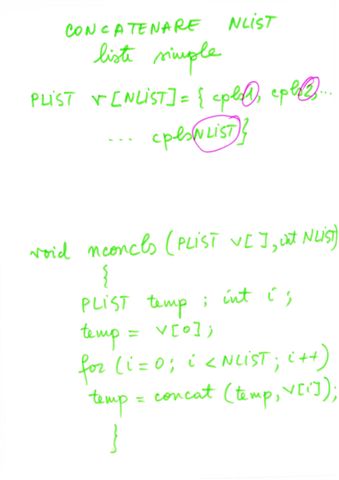 CONCATENARE NLIST
liste simple
PLIST v[NLIST]={cpls1, cpls2,...
... cplsNLIST}
void nconcls (PLIST v[], int NLIST)
{
PLIST temp; int i;
temp = v[0];
for (i=0; i<NLIST; i++)
temp = concat (temp, v[i]);
}